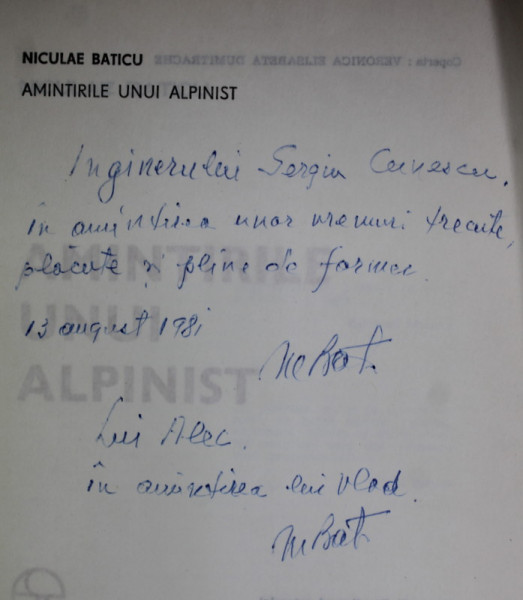 NICULAE BATICU
Coperta : VERONICA ELISABETA DUMITRACHE
AMINTIRILE UNUI ALPINIST
Inginerului Sergiu Cunescu,
în amintirea unor vremuri trecute,
plăcute și pline de farmec
13 august 1981
NBat.
AMINTIRILE
UNUI
ALPINIST
Lui Alec.
în amintirea lui Vlad.
NBat